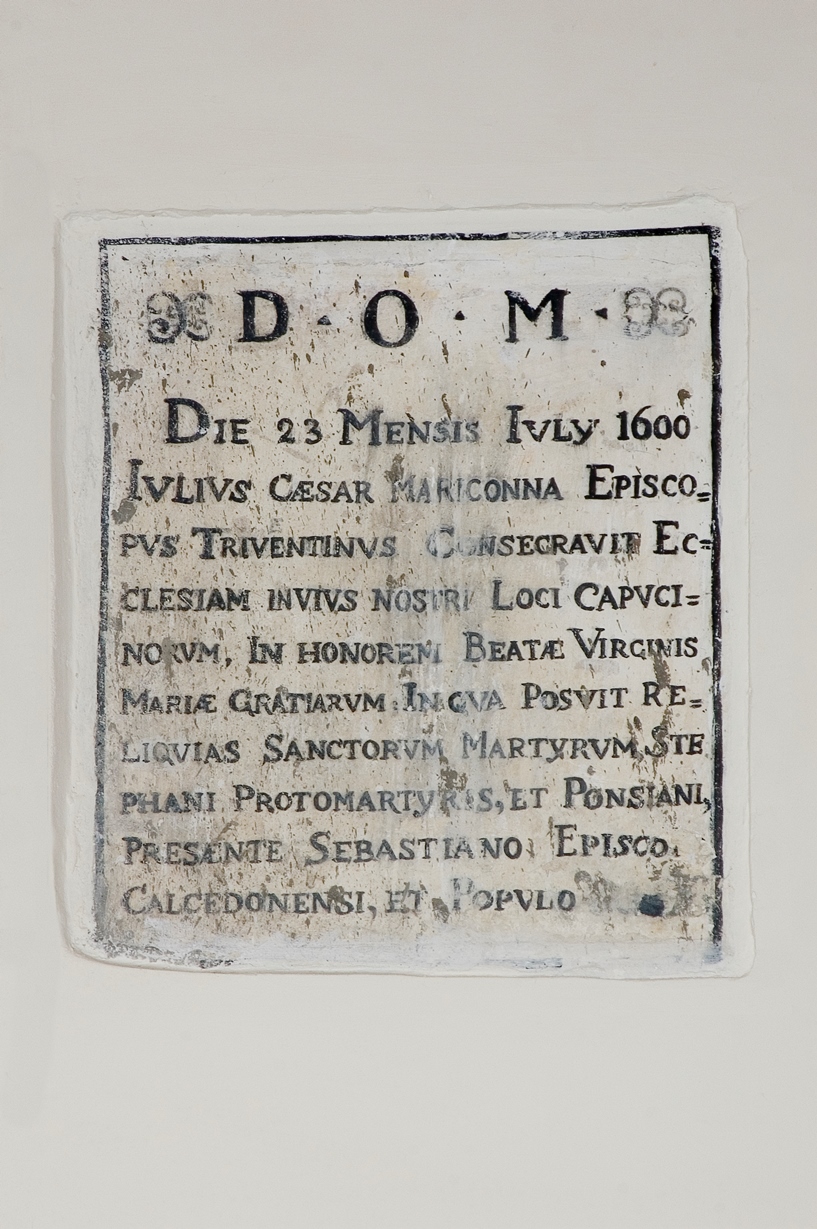 D · O · M ·
DIE 23 MENSIS IVLY 1600
IVLIVS CÆSAR MARICONNA EPISCO=
PVS TRIVENTINVS CONSECRAVIT EC=
CLESIAM INVIVS NOSTRI LOCI CAPVCI=
NORVM, IN HONOREM BEATÆ VIRGINIS
MARIÆ GRATIARVM. IN QVA POSVIT RE=
LIQVIAS SANCTORVM MARTYRVM, STE
PHANI PROTOMARTYRIS, ET PONSIANI,
PRESÆNTE SEBASTIANO EPISCO.
CALCEDONENSI, ET POPVLO